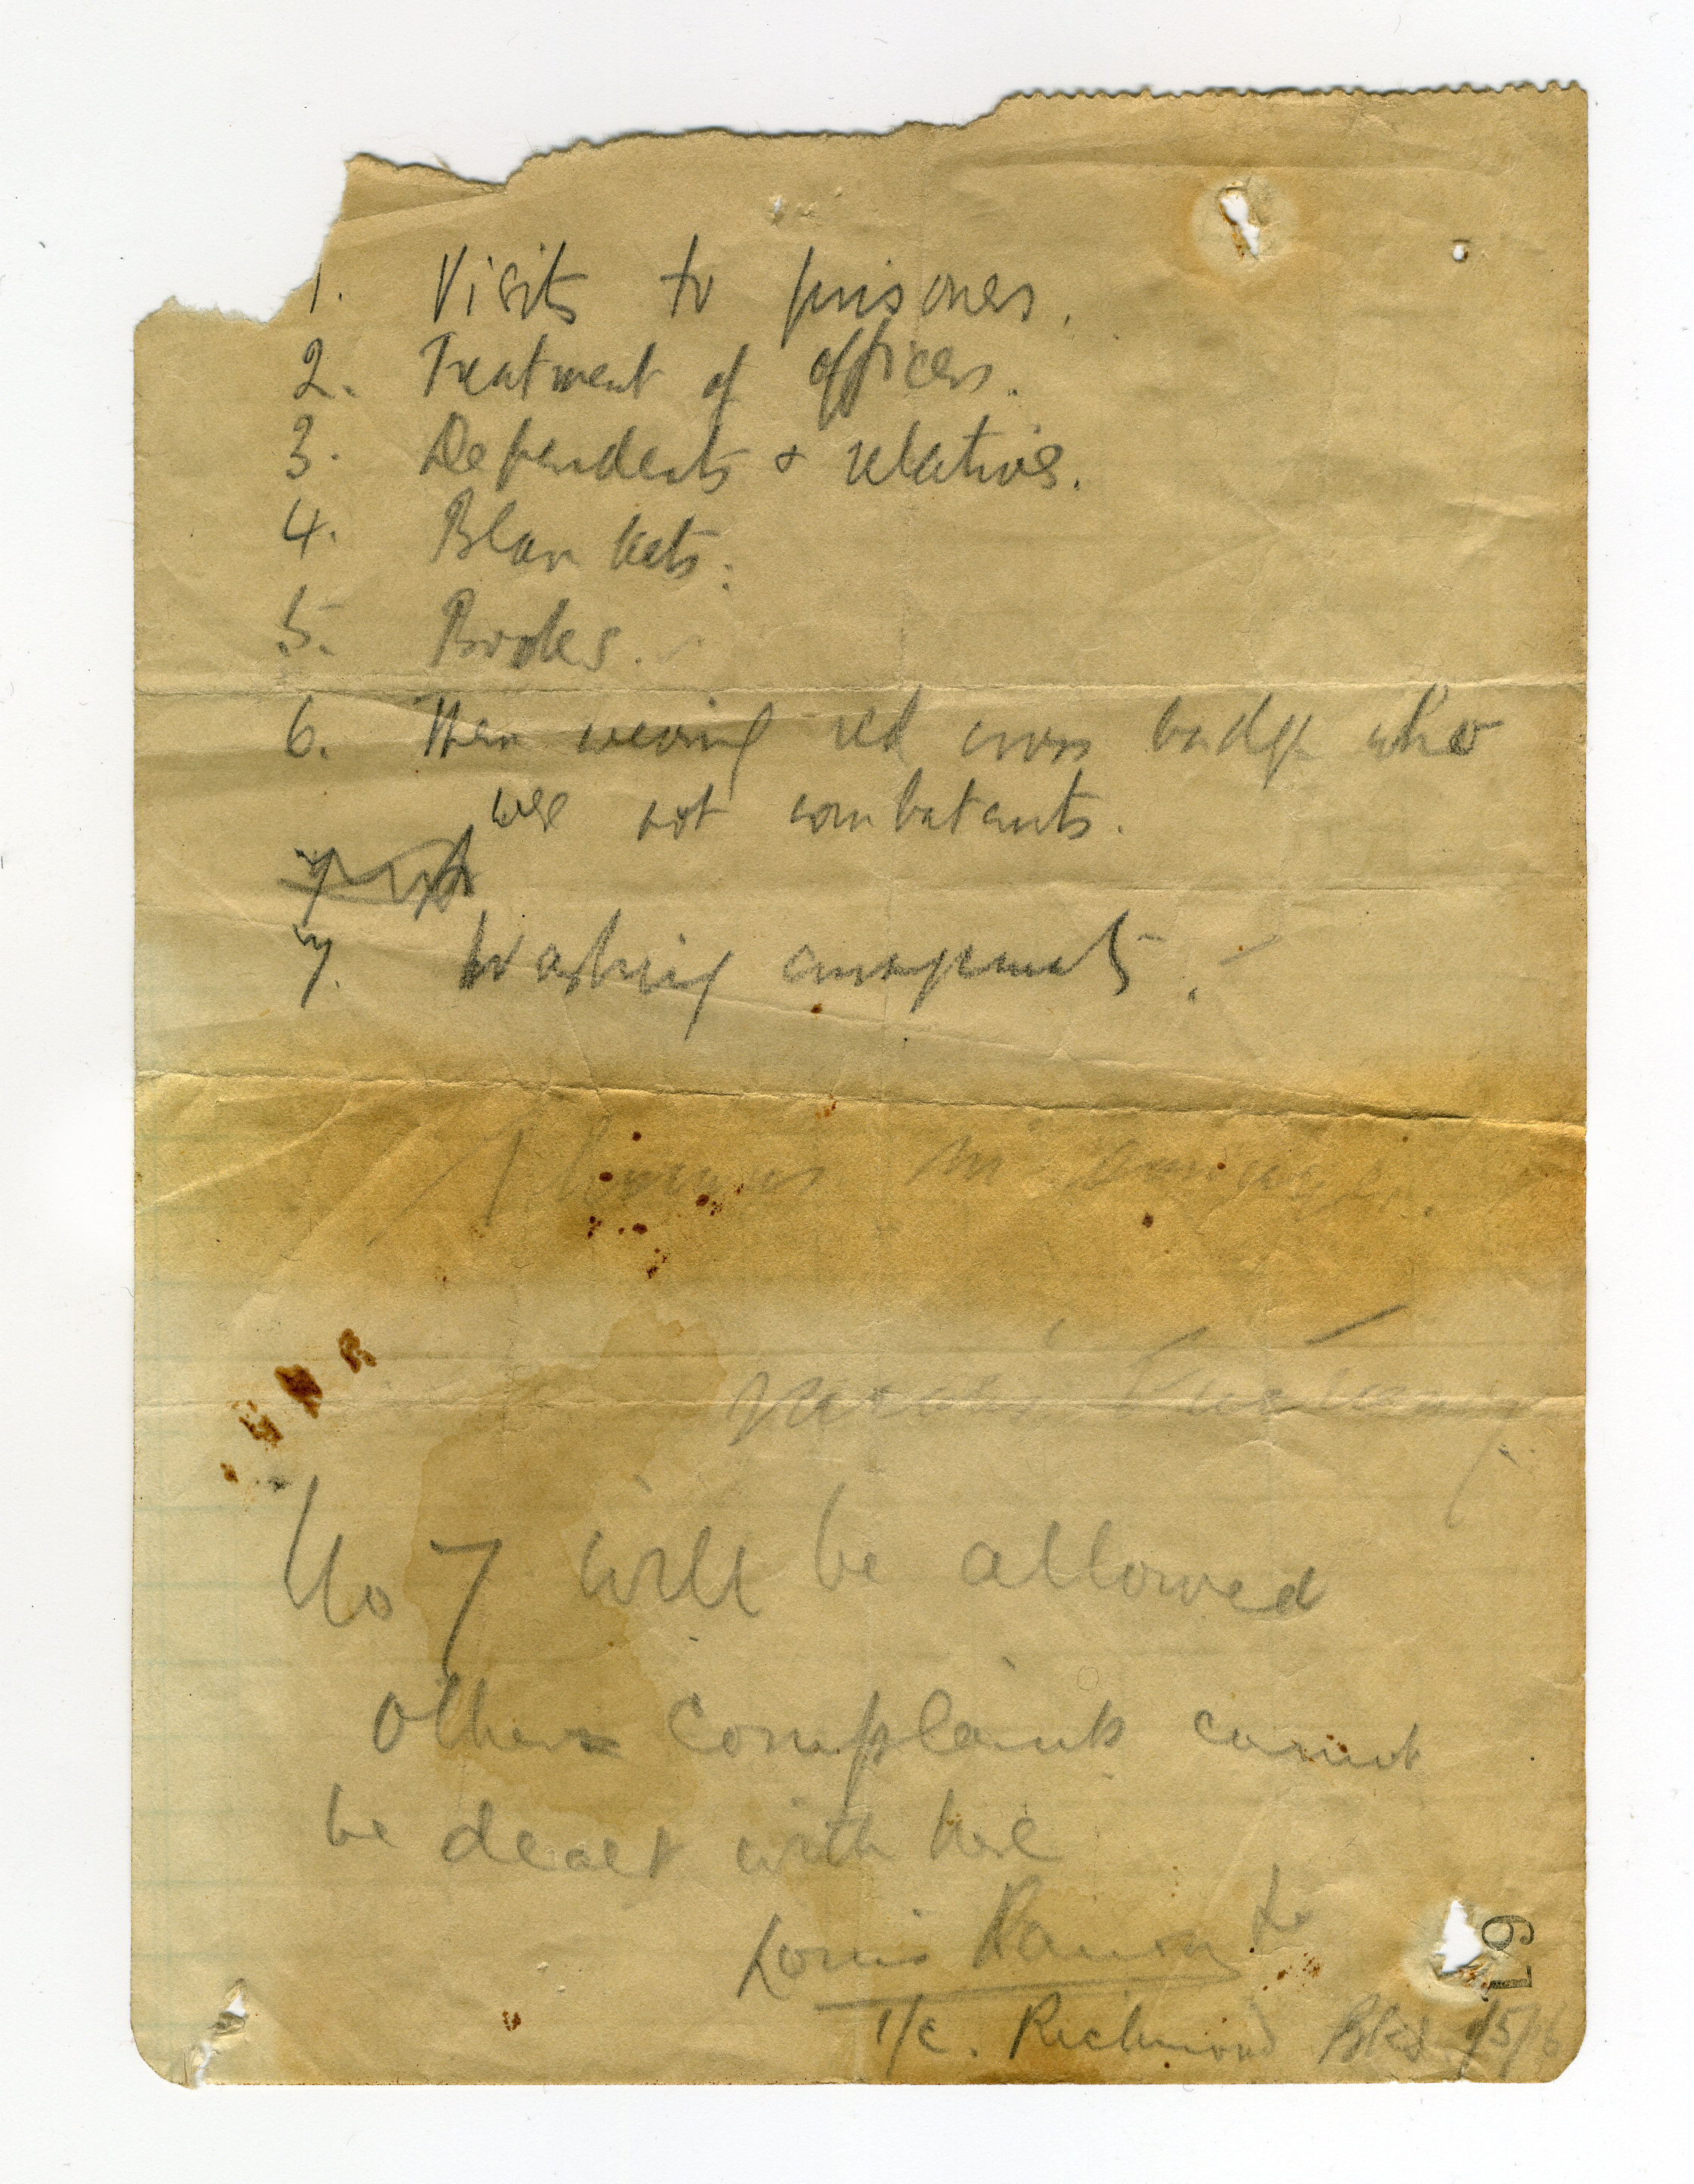 1. Visits to prisoners.
2. Treatment of officers.
3. Dependents & relatives.
4. Blankets.
5. Books.
6. Men wearing red cross badge who
were not combatants.
7.
7. Washing arrangements.
No 7 will be allowed
Other complaints cannot
be dealt with here
Louis Lt
I/C. Richmond Bks /5/16
67